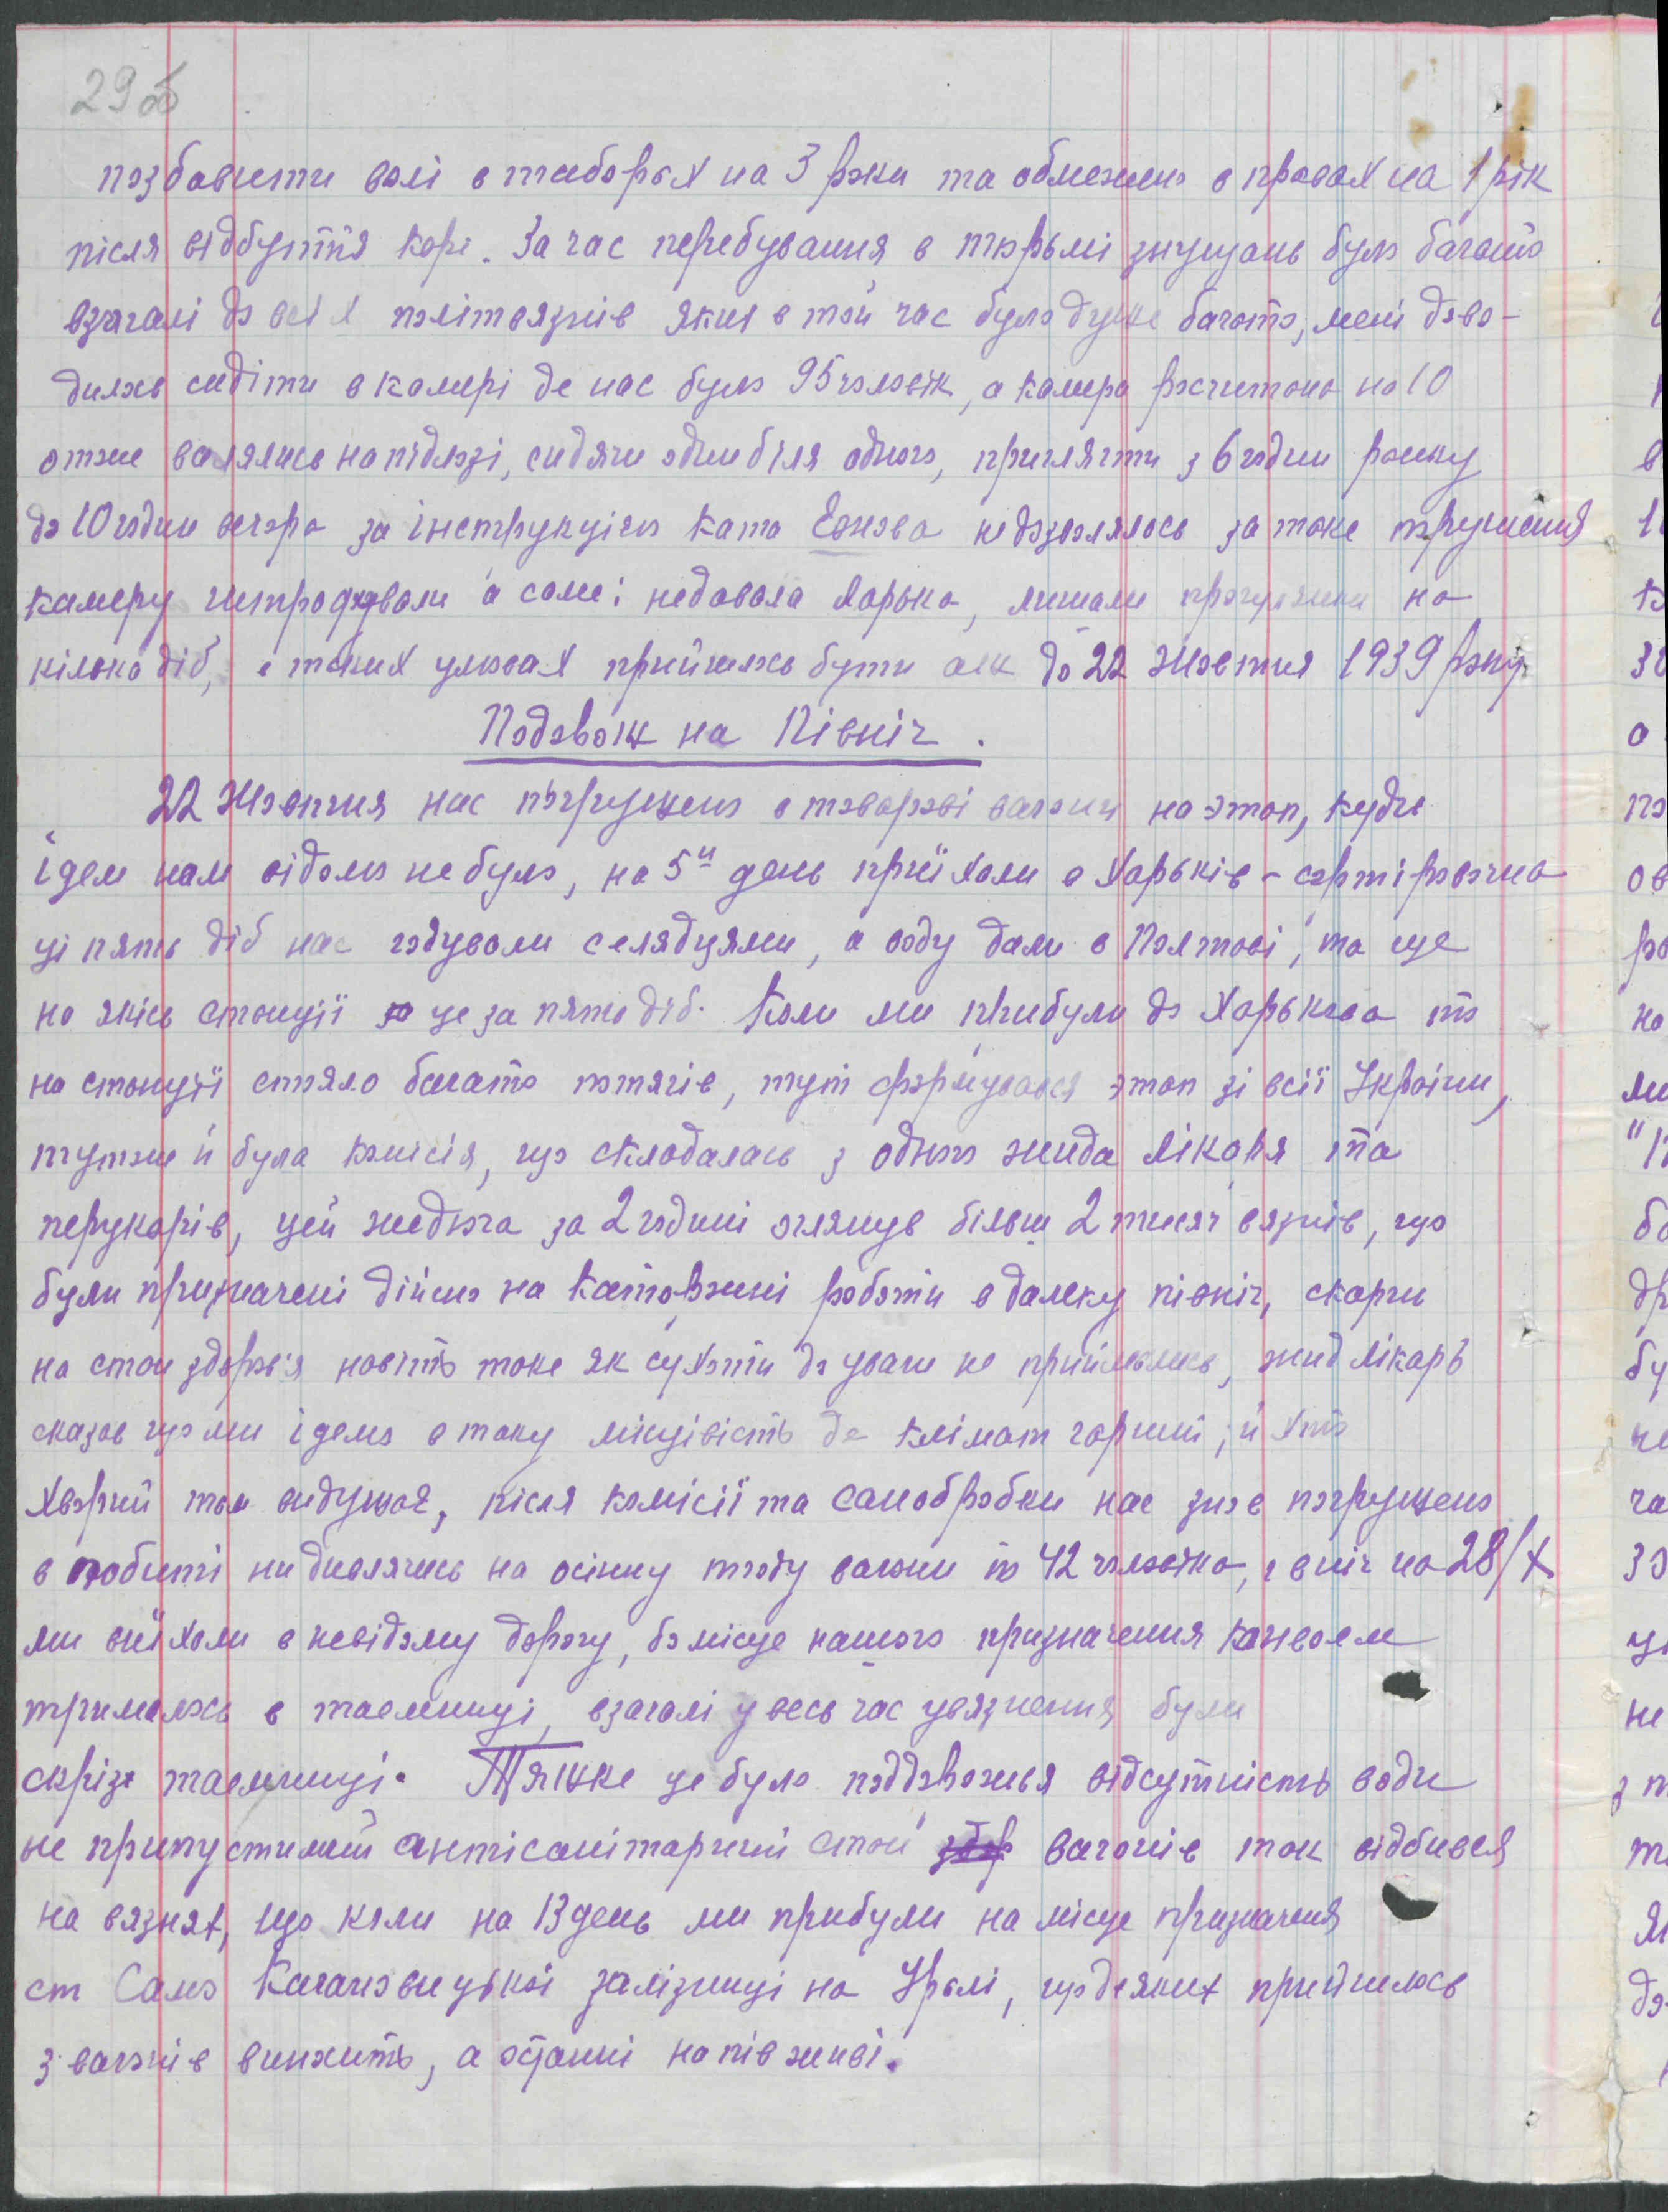 29об
позбавити волі в таборах на 3 роки та обмежено в правах на 1 рік
після відбуття карі. За час перебування в тюрьмі знущань було багато
взагалі до всіх політвязнів яких в той час було дуже багато, мені дово-
дилось сидіти в камері де нас було 95 чоловік, а камера росчитана на 10
отже валялись на підлозі, сидячи один біля одного, прилягти з 6 годин ранку
до 10 годин вечора за інструкцією ката Ежова недозволялось за таке порушення
камеру штрафували а саме: недавала ларька, лишали прогулянки на
кілька діб, в таких умовах прийшлось бути аж до 22 жовтня 1939 року
Подовож на Північ.
22 жовтня нас погружено в товарові вагони на этап, куди
ідем нам відомо небуло, на 5й день приїхали в Харьків - сортіровочна
ці пять діб нас годували селядцями, а воду дали в Полтаві, та ще
на якісь станції це за пять діб. Коли ми прибули до Харькова то
на станції стояло багато потягів, тут формувався этап зі всії Україіни,
тутже й була комісія, що складалась з одного жида лікаря та
перукарів, цей жидюга за 2 годині оглянув більш 2 тисяч вязнів, що
були призначені дійсно на каторжні роботи в далеку північ, скарги
на стан здоровья навіть таке як сухоти до уваги не приймались, жид лікарь
сказав що ми ідемо в таку місцівість де клімат гарний, й хто
хворий той видужає, після комісії та санобробки нас знов погружено
в побиті недивлячись на осінну погоду вагони по 42 чоловіка, в ніч на 28/X
ми виїхали в невідому дорогу, бо місце нашого призначення конвоєм
трималось в таємниці, взагалі увесь час увязнення були
скрізь таемниці. Тяжке це було поддовожжя відсутність води
не припустимий антісанітарний стан вагонів так відбився
на вязнях, що коли на 13 день ми прибули на місце призначення
ст Сама Кагановицької залізниці на Уралі, що деяких прийшлось
з вагонів виносить, а останні напів живі.